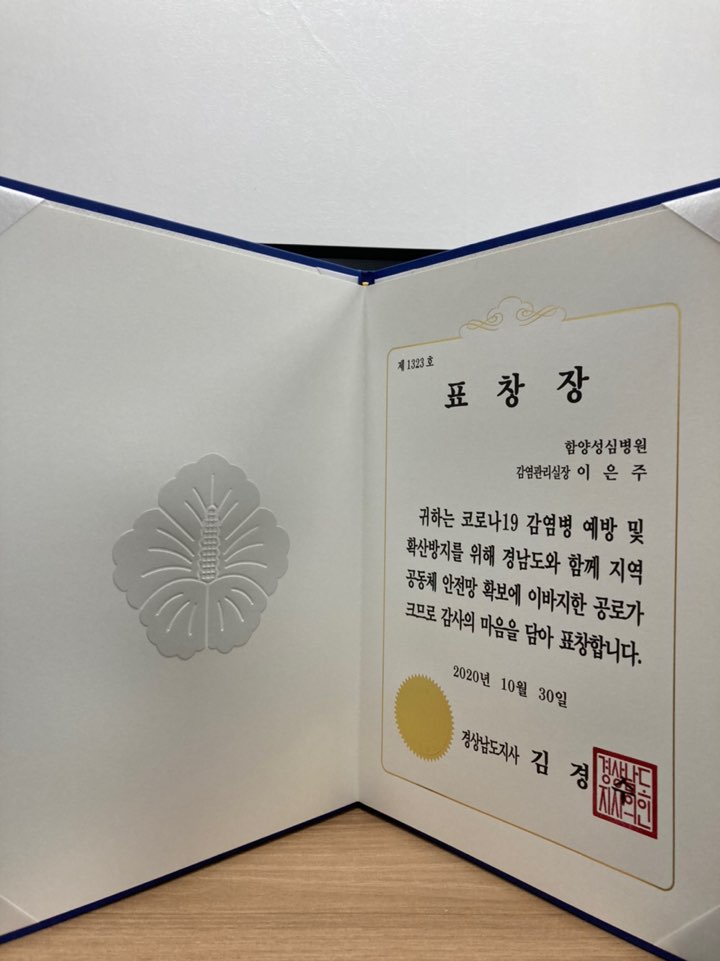 제 1323 호
표 창 장
함양성심병원
감염관리실장 이 은 주
귀하는 코로나19 감염병 예방 및
확산방지를 위해 경남도와 함께 지역
공동체 안전망 확보에 이바지한 공로가
크므로 감사의 마음을 담아 표창합니다.
2020년 10월 30일
경상남도지사 김 경 수
경상남도
지사의인